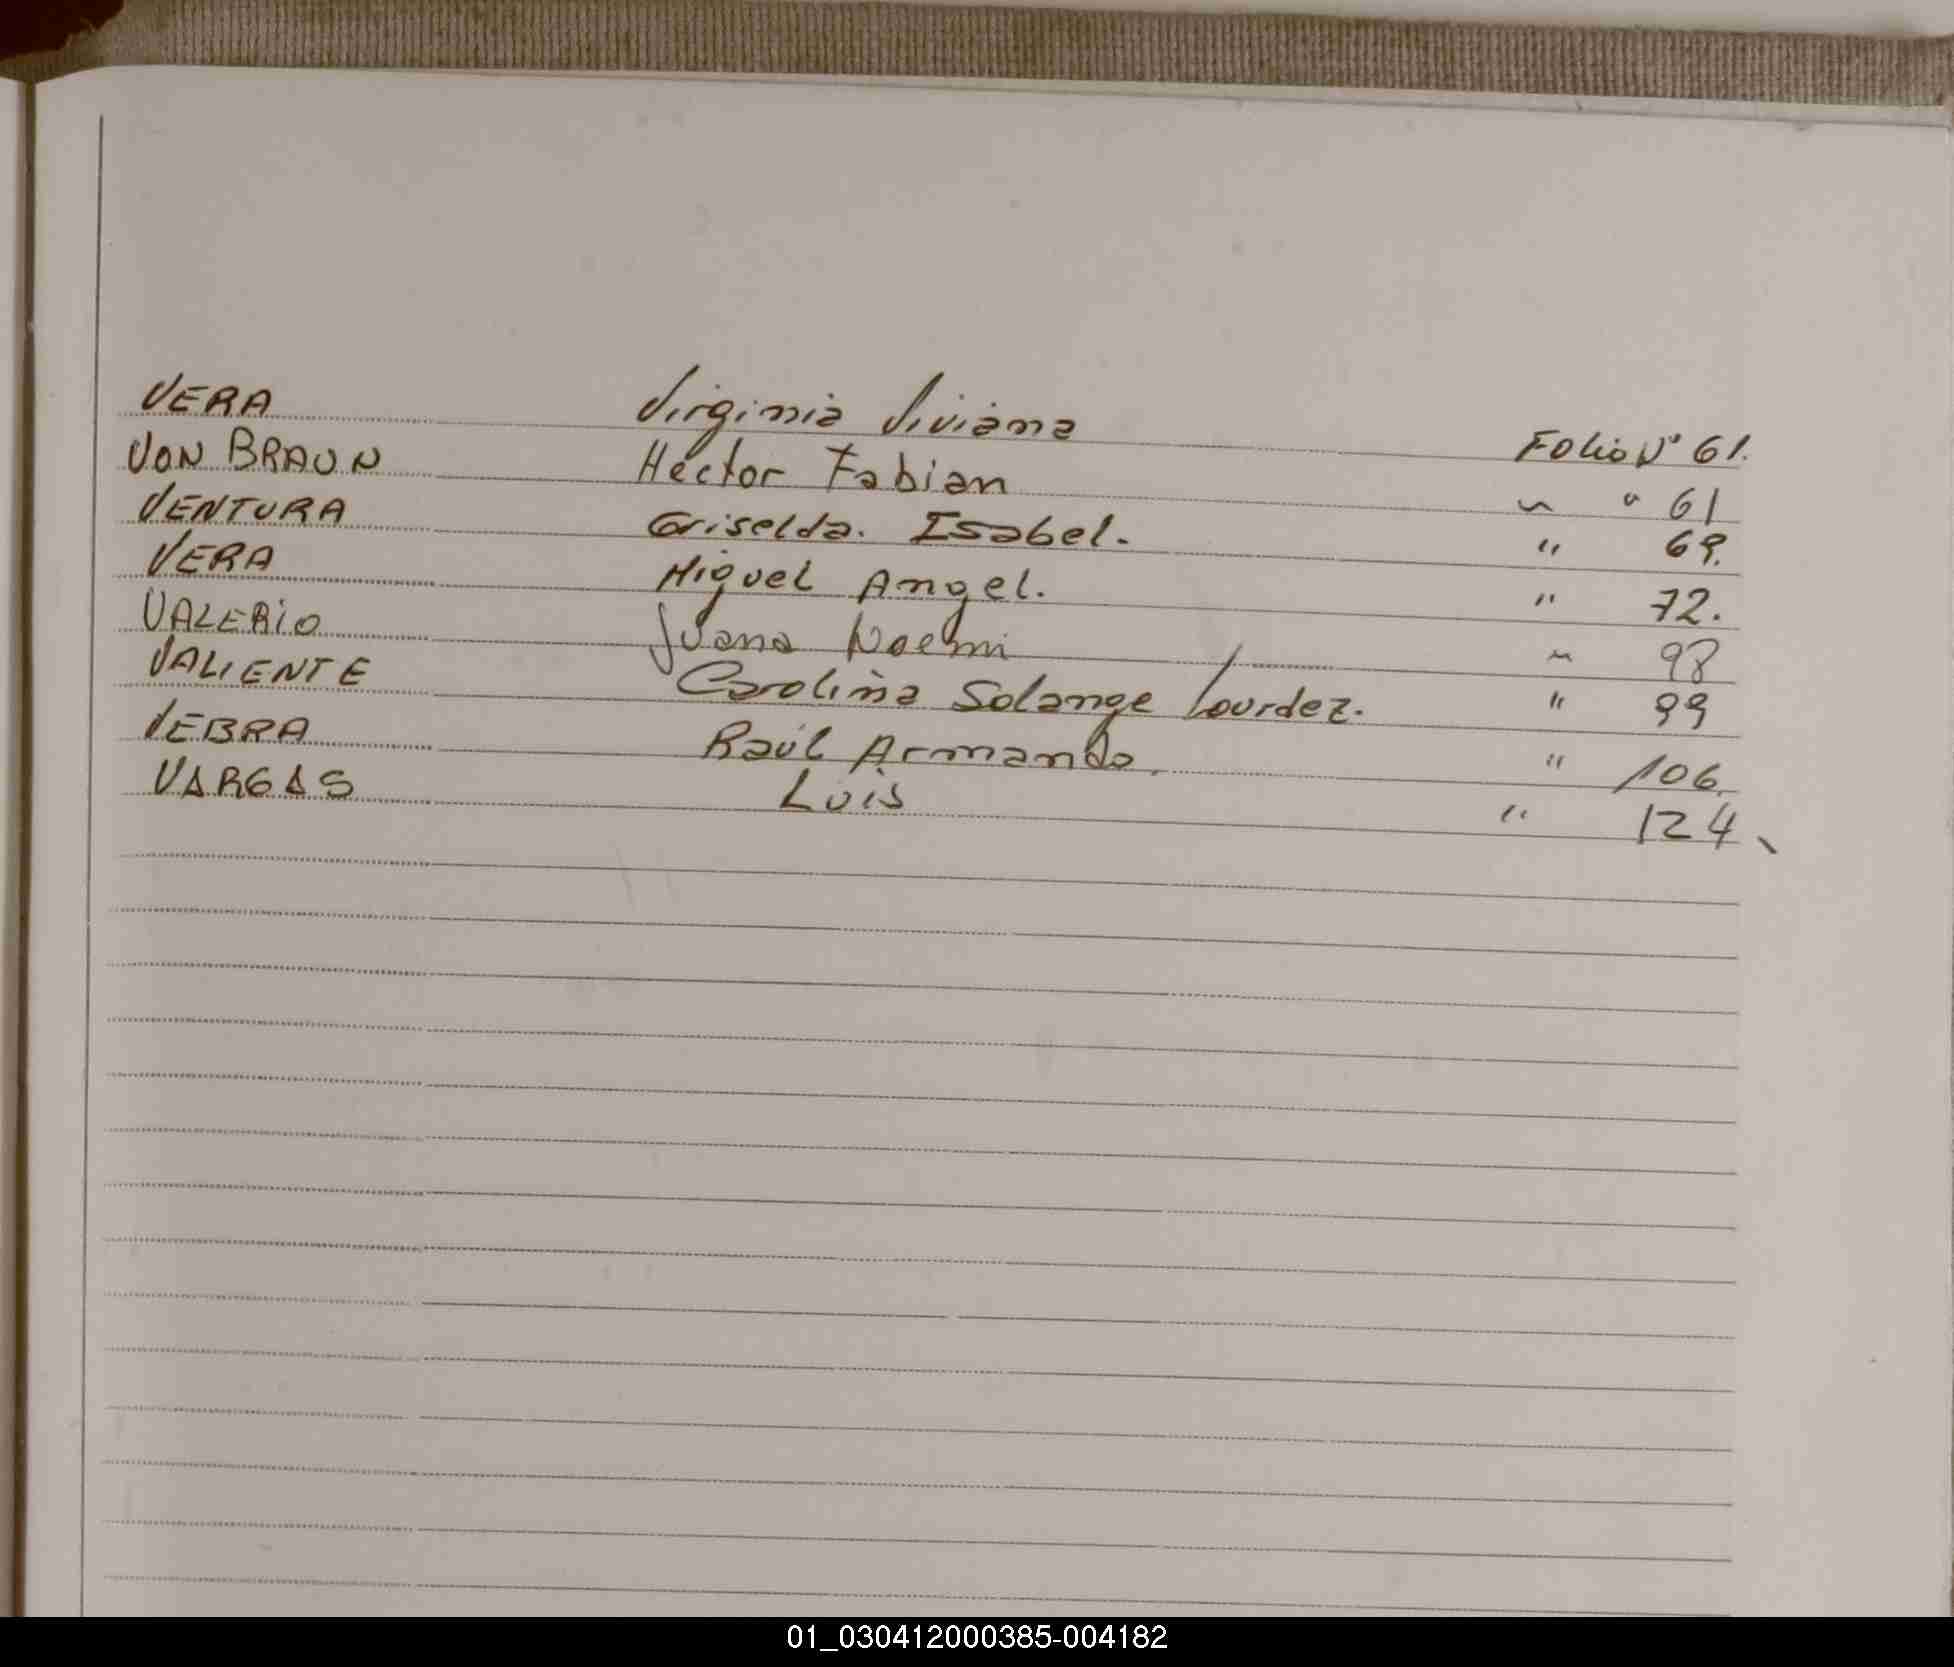 VERA Virginia Viviana Folio Nº 61.
VON BRAUN Hector Fabian " " 61
VENTURA Griselda. Isabel. " 69.
VERA Miguel Angel. " 72.
VALERIO Juana Noemi " 98
VALIENTE Carolina Solange Lourdez. " 99
VEBRA Raúl Armando. " 106.
VARGAS Luis " 124
01_030412000385-004182